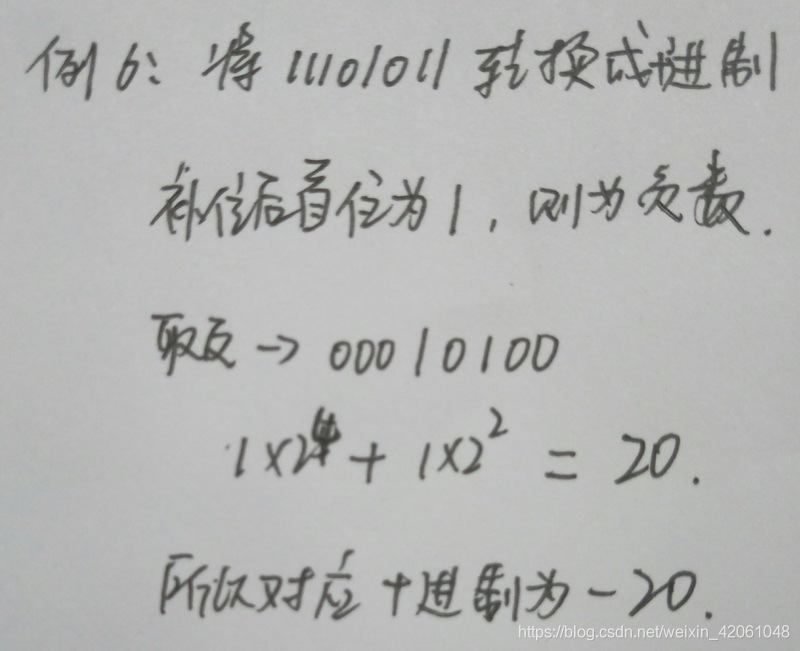 例6：将11101011转换成十进制
补位后首位为1，则为负数.
取反→00010100
1×2⁴+1×2²=20.
所以对应十进制为-20.
https://blog.csdn.net/weixin_42061048